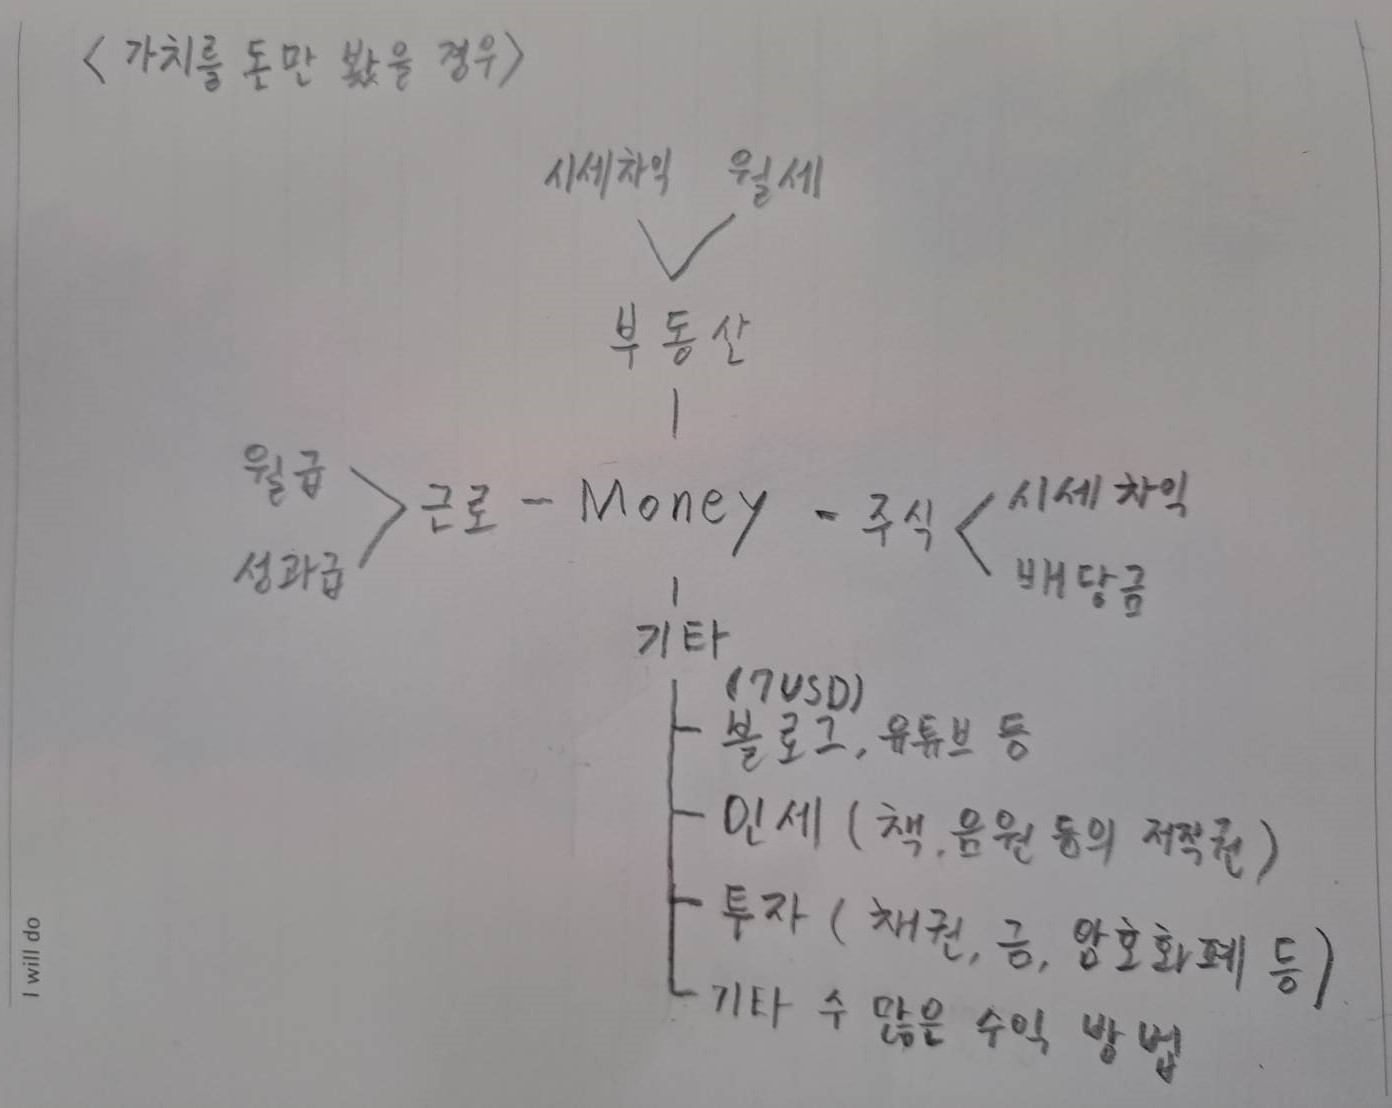 < 가치를 돈만 봤을 경우>
시세차익 월세
부동산
월급
성과급
근로 - Money - 주식
시세차익
배당금
기타
(7USD)
블로그, 유튜브 등
인세 (책, 음원 등의 저작권)
투자 (채권, 금, 암호화폐 등)
기타 수 많은 수익 방법
I will do